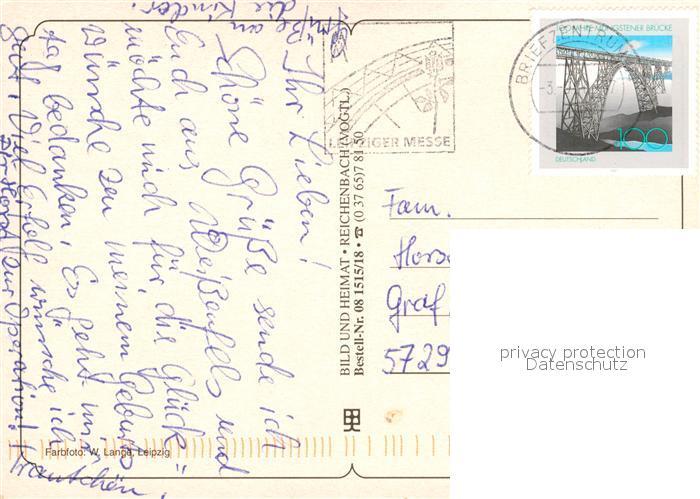 Ihr Lieben!
Schöne Grüße sende ich
Euch aus Weißenfels und
möchte mich für die Glück=
wünsche zu meinem Geburts
tag bedanken. Es geht mir
gut. Viel Erfolg wünsche ich
Dir Horst zur Operation!
Grüße an
die Kinder!
BILD UND HEIMAT • REICHENBACH (VOGTL.)
Bestell-Nr. 08 1515/18 • ☎ (0 37 65) 7 81 50
Farbfoto: W. Lange, Leipzig
LEIPZIGER MESSE
BRIEFZENTRUM
100 JAHRE MÜNGSTENER BRÜCKE
100
DEUTSCHLAND
Fam.
Hors
Graf
5729
privacy protection
Datenschutz